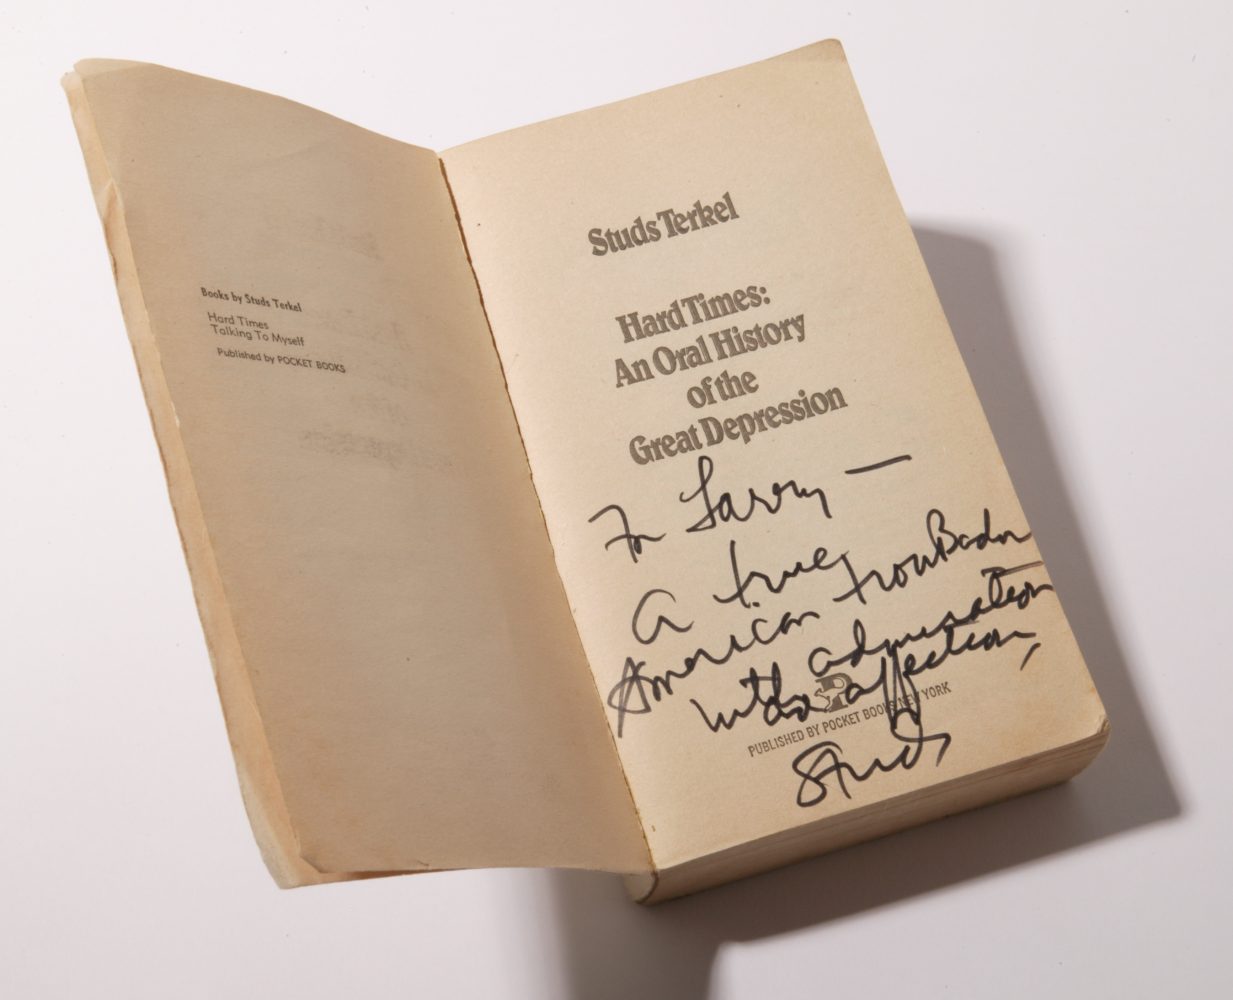 Books by Studs Terkel
Hard Times
Talking To Myself
Published by POCKET BOOKS
Studs Terkel
Hard Times:
An Oral History
of the
Great Depression
To Larry —
a true
American trouBador
with admiration
and affection,
PUBLISHED BY POCKET BOOKS NEW YORK
Studs